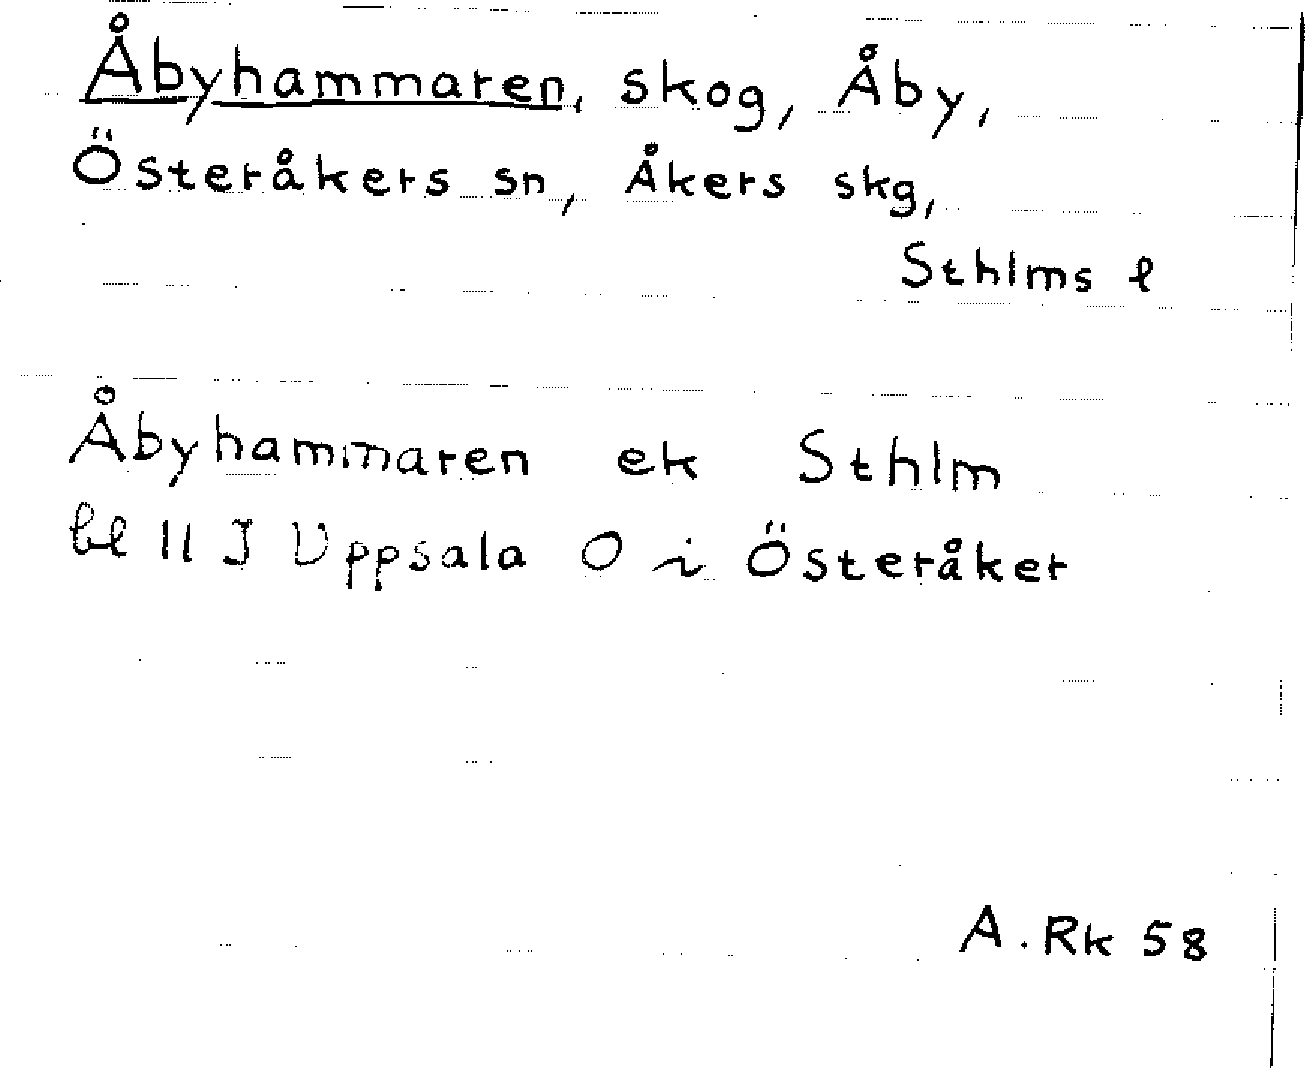 Åbyhammaren, skog, Åby,
Österåkers sn, Åkers skg,
Sthlms l
Åbyhammaren ek Sthlm
bl 11 J Uppsala O i Österåker
A. Rk 58